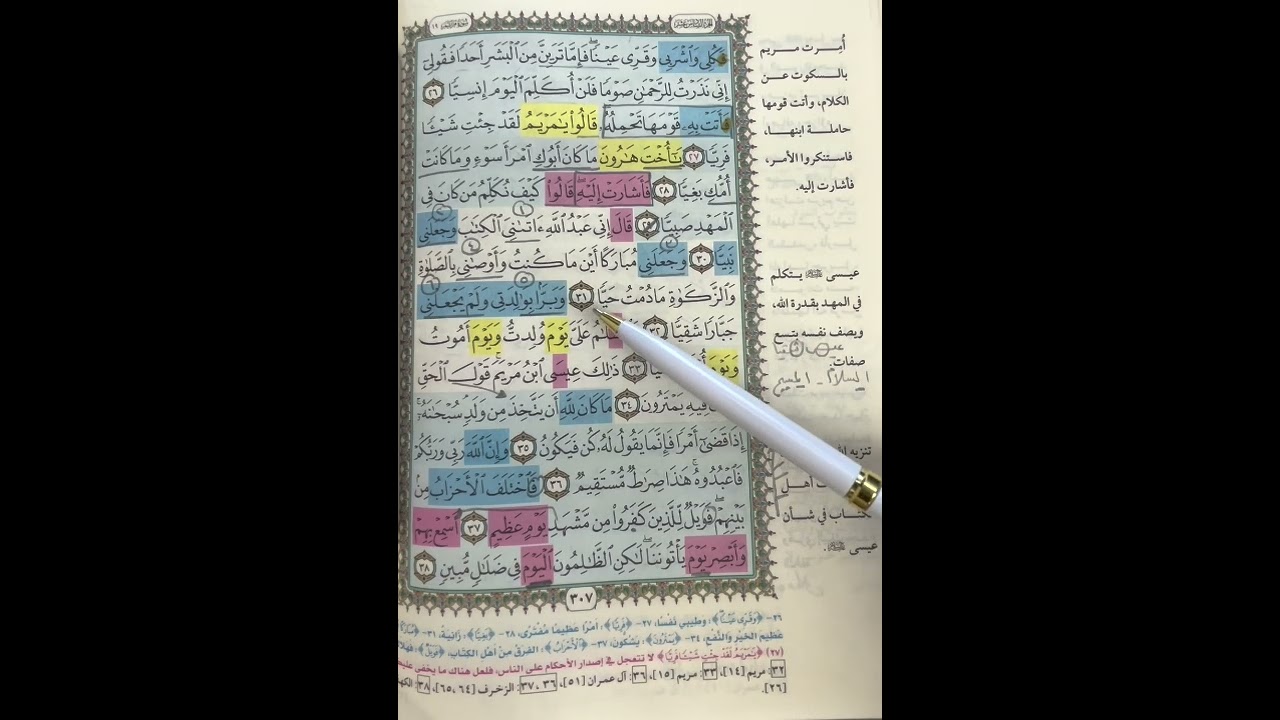 الجزء السادس عشر
سورة مريم ١٩
فَكُلِي وَٱشْرَبِي وَقَرِّي عَيْنًاۖ فَإِمَّا تَرَيِنَّ مِنَ ٱلْبَشَرِ أَحَدًا فَقُولِيٓ
إِنِّي نَذَرْتُ لِلرَّحْمَٰنِ صَوْمًا فَلَنْ أُكَلِّمَ ٱلْيَوْمَ إِنسِيًّا ٢٦
فَأَتَتْ بِهِۦ قَوْمَهَا تَحْمِلُهُۥۖ قَالُوا۟ يَٰمَرْيَمُ لَقَدْ جِئْتِ شَيْـًٔا
فَرِيًّا ٢٧ يَٰٓأُخْتَ هَٰرُونَ مَا كَانَ أَبُوكِ ٱمْرَأَ سَوْءٍ وَمَا كَانَتْ
أُمُّكِ بَغِيًّا ٢٨ فَأَشَارَتْ إِلَيْهِۖ قَالُوا۟ كَيْفَ نُكَلِّمُ مَن كَانَ فِي
ٱلْمَهْدِ صَبِيًّا ٢٩ قَالَ إِنِّي عَبْدُ ٱللَّهِ ءَاتَىٰنِيَ ٱلْكِتَٰبَ وَجَعَلَنِي
نَبِيًّا ٣٠ وَجَعَلَنِي مُبَارَكًا أَيْنَ مَا كُنتُ وَأَوْصَٰنِي بِٱلصَّلَوٰةِ
وَٱلزَّكَوٰةِ مَا دُمْتُ حَيًّا ٣١ وَبَرًّۢا بِوَٰلِدَتِي وَلَمْ يَجْعَلْنِي
جَبَّارًا شَقِيًّا ٣٢ عَلَيَّ يَوْمَ وُلِدتُّ وَيَوْمَ أَمُوتُ
وَيَوْمَ ٣٣ ذَٰلِكَ عِيسَى ٱبْنُ مَرْيَمَۖ قَوْلَ ٱلْحَقِّ
فِيهِ يَمْتَرُونَ ٣٤ مَا كَانَ لِلَّهِ أَن يَتَّخِذَ مِن وَلَدٍۖ سُبْحَٰنَهُۥٓۚ
إِذَا قَضَىٰٓ أَمْرًا فَإِنَّمَا يَقُولُ لَهُۥ كُن فَيَكُونُ ٣٥ وَإِنَّ ٱللَّهَ رَبِّي وَرَبُّكُمْ
فَٱعْبُدُوهُۚ هَٰذَا صِرَٰطٌ مُّسْتَقِيمٌ ٣٦ فَٱخْتَلَفَ ٱلْأَحْزَابُ مِنۢ
بَيْنِهِمْۖ فَوَيْلٌ لِّلَّذِينَ كَفَرُوا۟ مِن مَّشْهَدِ يَوْمٍ عَظِيمٍ ٣٧ أَسْمِعْ بِهِمْ
وَأَبْصِرْ يَوْمَ يَأْتُونَنَاۖ لَٰكِنِ ٱلظَّٰلِمُونَ ٱلْيَوْمَ فِي ضَلَٰلٍ مُّبِينٍ ٣٨
٣٠٧
أُمِرت مريم
بالسكوت عن
الكلام، وأتت قومها
حاملة ابنها،
فاستنكروا الأمر،
فأشارت إليه.
عيسى ﷺ يتكلم
في المهد بقدرة الله،
ويصف نفسه بتسع
صفات.
السلام -
تنزيه
أهل
في شأن
عيسى ﷺ.
٢٦- ﴿وَقَرِّي عَيْنًا﴾: وطيبي نفسًا، ٢٧- ﴿فَرِيًّا﴾: أمرًا عظيمًا مفترى، ٢٨- ﴿بَغِيًّا﴾: زانية، ٣١- ﴿مُبَارَكًا﴾
عظيم الخير والنفع، ٣٤- ﴿يَمْتَرُونَ﴾: يشكون، ٣٧- ﴿ٱلْأَحْزَابُ﴾: الفرق من أهل الكتاب، ﴿فَوَيْلٌ﴾:
(٢٧) ﴿يَٰمَرْيَمُ لَقَدْ جِئْتِ شَيْـًٔا فَرِيًّا﴾ لا تتعجل في إصدار الأحكام على الناس، فلعل هناك ما يخفى
٣٢: مريم [١٤]، ٣٣: مريم [١٥]، ٣٦: آل عمران [٥١]، ٣٦، ٣٧: الزخرف [٦٤، ٦٥]، ٣٨:
[٢٦].